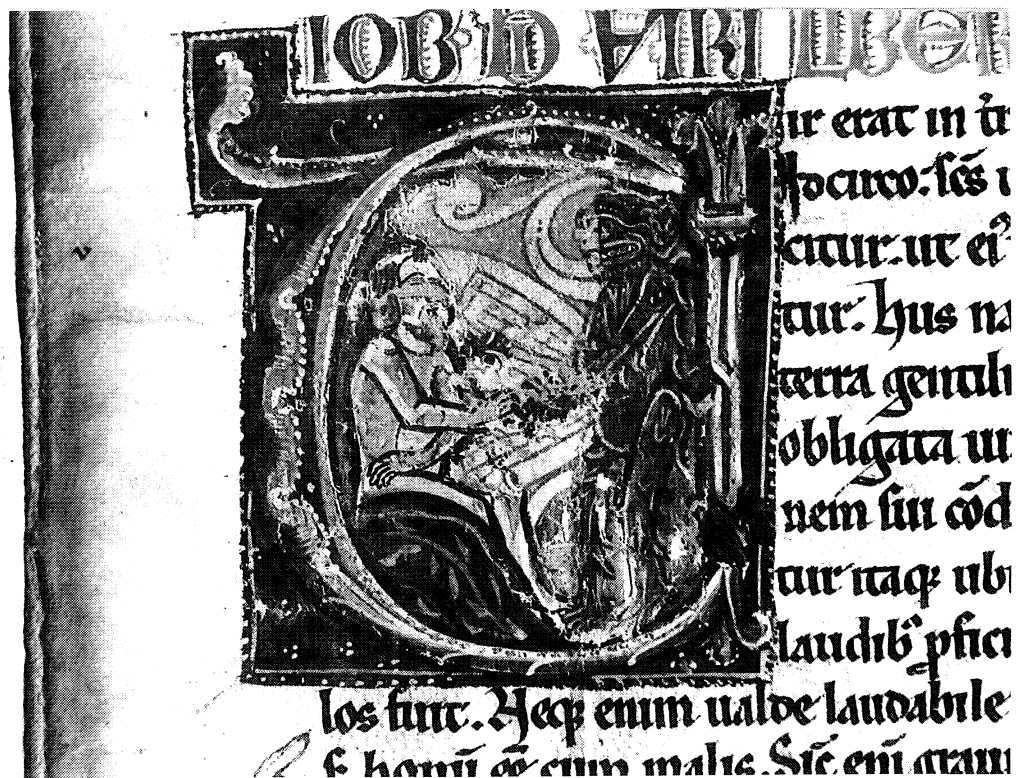 IOB
Vir erat in t̄r
Idcirco. sc̄s u
citur. ut ei᾽
tur. hus na
terra gentili
obligata ui
nem sui cōd
tur itaq; ubi
laudib; ꝓfici
los fuit. Neq; enim ualde laudabile
bonū ēē cum malis. Sic̄ enī graui